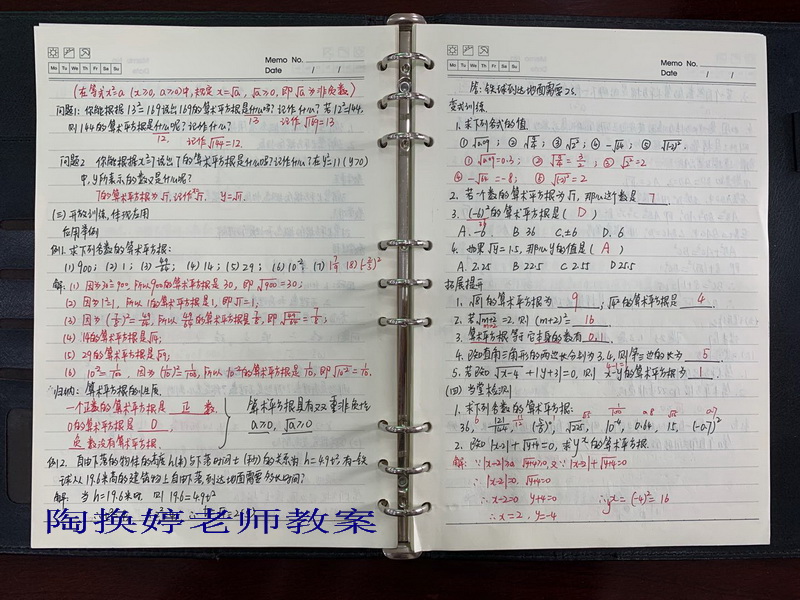 Memo No.
Mo Tu We Th Fr Sa Su
Date / /
(在等式x²=a (x≥0, a≥0)中, 规定 x=√a, √a≥0, 即 √a 为非负数)
问题1: 你能根据 13²=169说出169的算术平方根是什么吗? 记作什么? 若12²=144,
13 记作 √169=13
则144的算术平方根是什么呢? 记作什么?
12, 记作 √144=12
的算术平方根是什么吗? 记作什么? 在y²=11 (y>0)
中, y所表示的数又是什么呢?
7的算术平方根为√7, 记作
(三) 开放训练, 体现应用
应用举例
例1. 求下列各数的算术平方根:
(1) 900; (2) 1; (3) 49/64; (4) 14; (5) 29; (6) 10⁻²; (7)
解: (1) 因为30²=900, 所以900的算术平方根是 30, 即 √900=30;
(2) 因为1²=1, 所以1的算术平方根是1, 即√1=1;
(3) 因为 (7/8)²=49/64, 所以 49/64 的算术平方根是7/8, 即 √49/64=7/8;
(4) 14的算术平方根是√14;
(5) 29的算术平方根是√29;
(6) 10⁻²=1/100, 因为 (1/10)²=1/100, 所以 10⁻²的算术平方根是 1/10, 即√10⁻²=1/10.
归纳: 算术平方根的性质
一个正数的算术平方根是 正 数
0的算术平方根是 0
负 数没有算术平方根.
算术平方根具有双重非负性
a≥0, √a≥0
例2. 自由下落的物体的高度 h(米)与下落时间 t (秒)的关系为 h=4.9t². 有一铁
球从19.6米高的建筑物上自由下落, 到达地面需要多长时间?
解: 当 h=19.6时, 则 19.6=4.9t²
陶换婷老师教案
Memo No.
Mo Tu We Th Fr Sa Su
Date / /
答: 铁球到达地面需要2s.
变式训练
1. 求下列各式的值.
① √0.09=0.3; ③ √2²=2
④ -√64=-8; ⑤ √(-2)²=2
2. 若一个数的算术平方根为√7, 那么这个数是 7 .
3. (-6)²的算术平方根是 ( D )
A. -6 B 36 C. ±6 D. 6
4. 如果 √y=1.5, 那么y的值是 ( A )
A. 2.25 B 22.5 C 2.55 D 25.5
拓展提升
1. √81的算术平方根为 9 , 的算术平方根是 4 .
2. 若√m+2=2, 则 (m+2)²= 16 .
3. 算术平方根等于它本身的数有 0,1 .
4. 已知直角三角形的两边长分别为3, 4, 则第三边的长为 5 .
5. 若已知 √x-4 + |y+3|=0, 则 x-y的算术平方根为
(四) 当堂检测
1. 求下列各数的算术平方根:
36, 121/144, √225, 10⁻⁴, 0.64, 15, (-0.7)²
2. 已知 |x-2|+√y+4=0, 求 yˣ的算术平方根.
解: ∵ |x-2|≥0, √y+4≥0, 又∵ |x-2|+√y+4=0
∴ |x-2|=0, √y+4=0
∴ x-2=0 y+4=0 ∴ yˣ=(-4)²=16
∴ x=2, y=-4